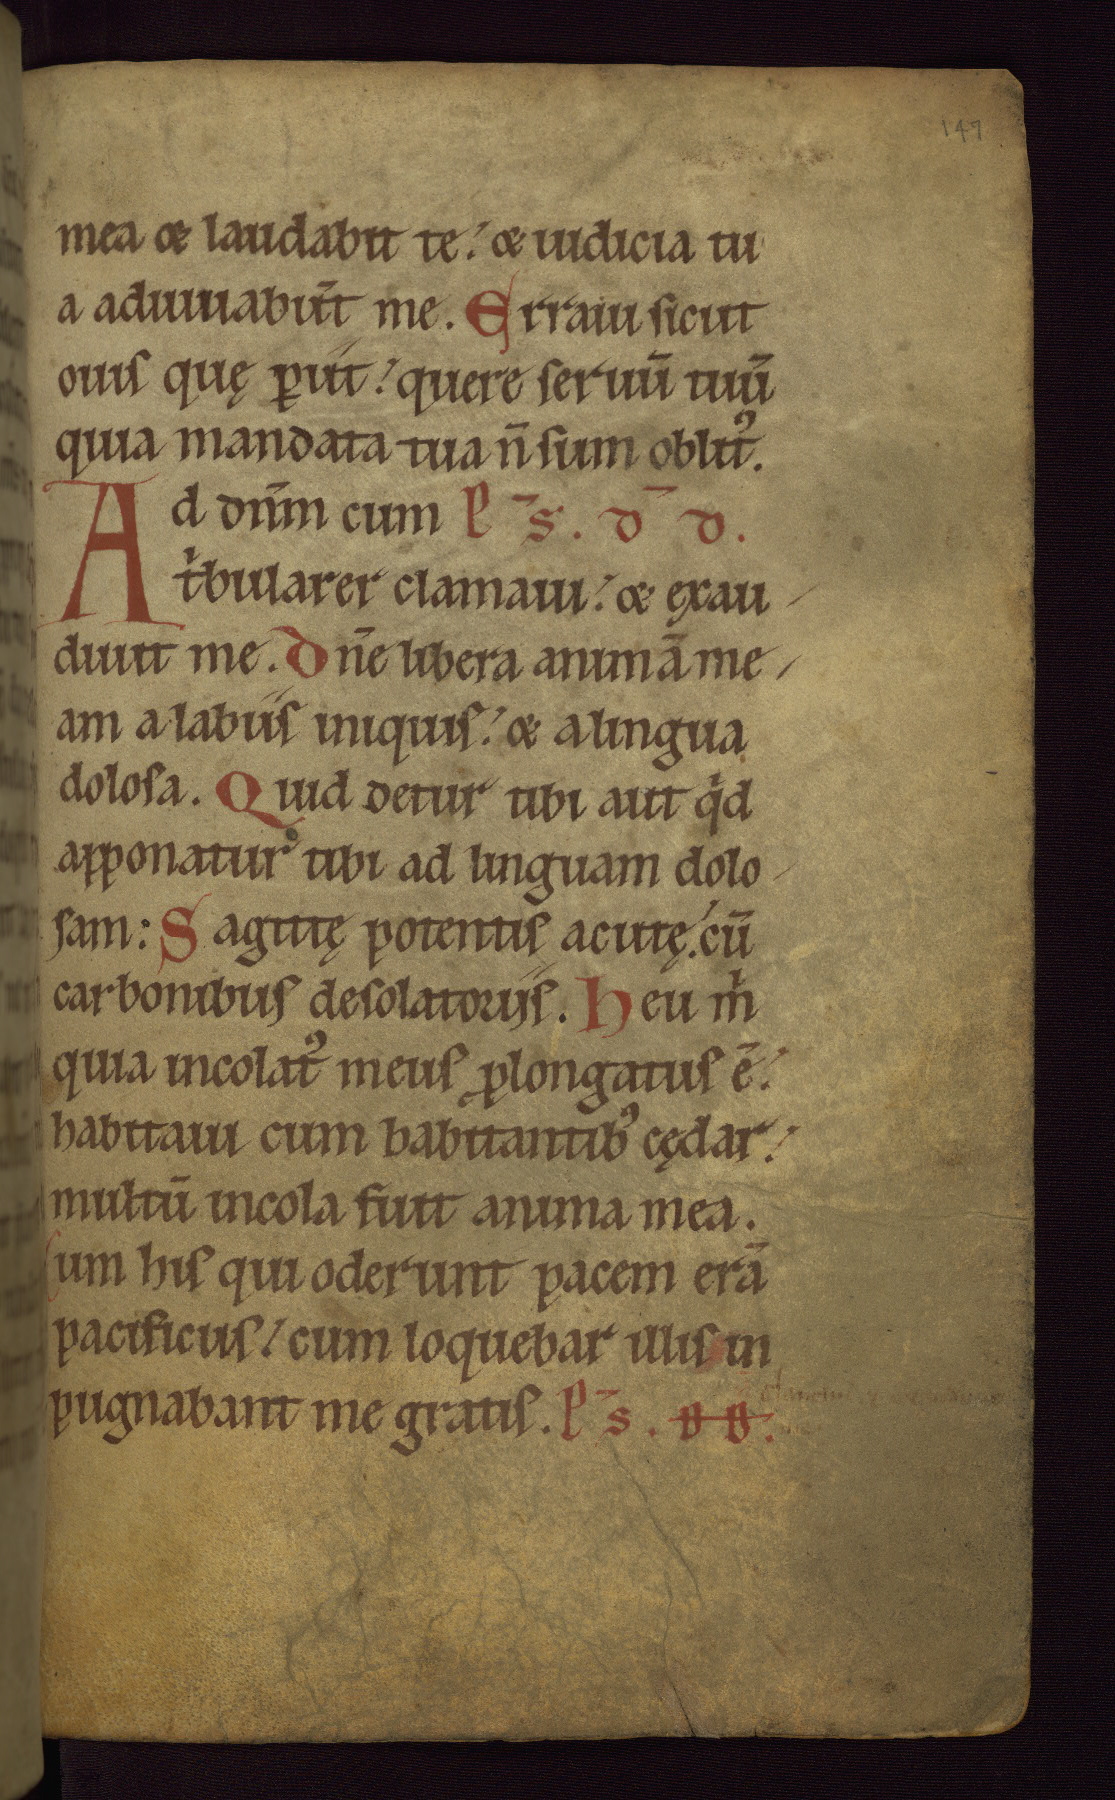 147
mea & laudabit te: & iudicia tu
a adiuuabūt me. Erraui sicut
ouis quę ꝑiit: quere seruū tuū
quia mandata tua n̄ sum oblitꝰ.
Ad dn̄m cum p̄s. d̄ d.
tͥbularer clamaui: & exau
diuit me. Dn̄e libera animā me
am a labiis iniquis: & a lingua
dolosa. Quid detur tibi aut qͥd
apponatur tibi ad linguam dolo
sam: Sagittę potentis acutę: cū
carbonibus desolatoriis. Heu mͥ
quia incolatꝰ meus ꝓlongatus ē:
habitaui cum habitantibꝰ cędar:
multū incola fuit anima mea.
Cum his qui oderunt pacem erā
pacificus: cum loquebar illis in
pugnabant me gratis. p̄s.